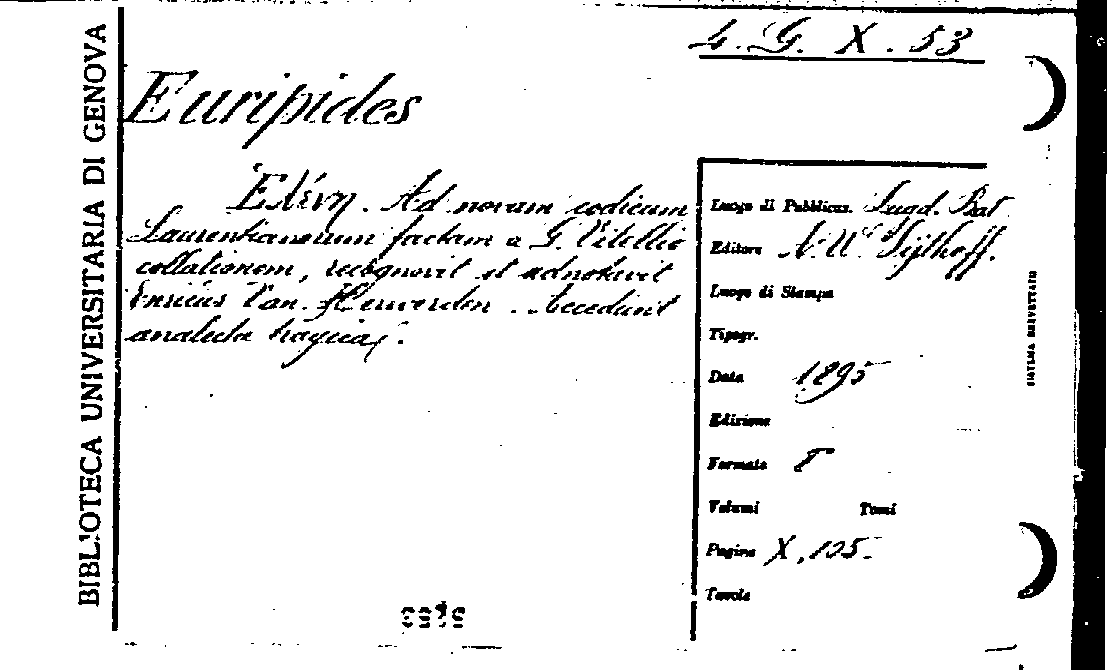 4. G. X. 53
BIBLIOTECA UNIVERSITARIA DI GENOVA
Euripides
Ἑλένη. Ad novam codicum
Laurentianorum factam a G. Vitellio
collationem, recognovit et adnotavit
Enricus Van. Herwerden. Accedunt
analecta tragica.
Luogo di Pubblicaz. Lugd. Bat
Editore A. W. Sijthoff.
Luogo di Stampa
Tipogr.
Data 1895
Edizione
Formato 8°
Volumi Tomi
Pagine X, 105.
Tavole
SISTEMA BREVETTATO